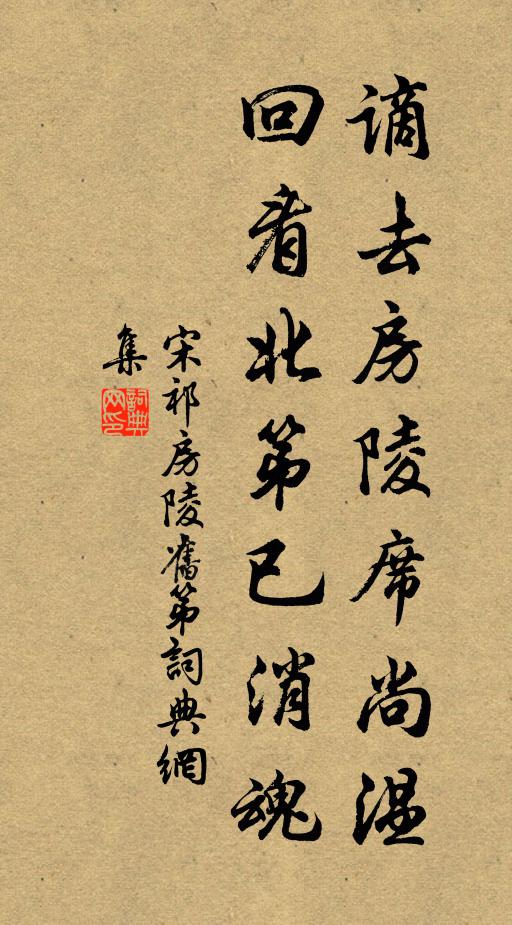 谪去房陵席尚温
回看北第已消魂
宋祁房陵舊第詞典網
集
詞典
网印